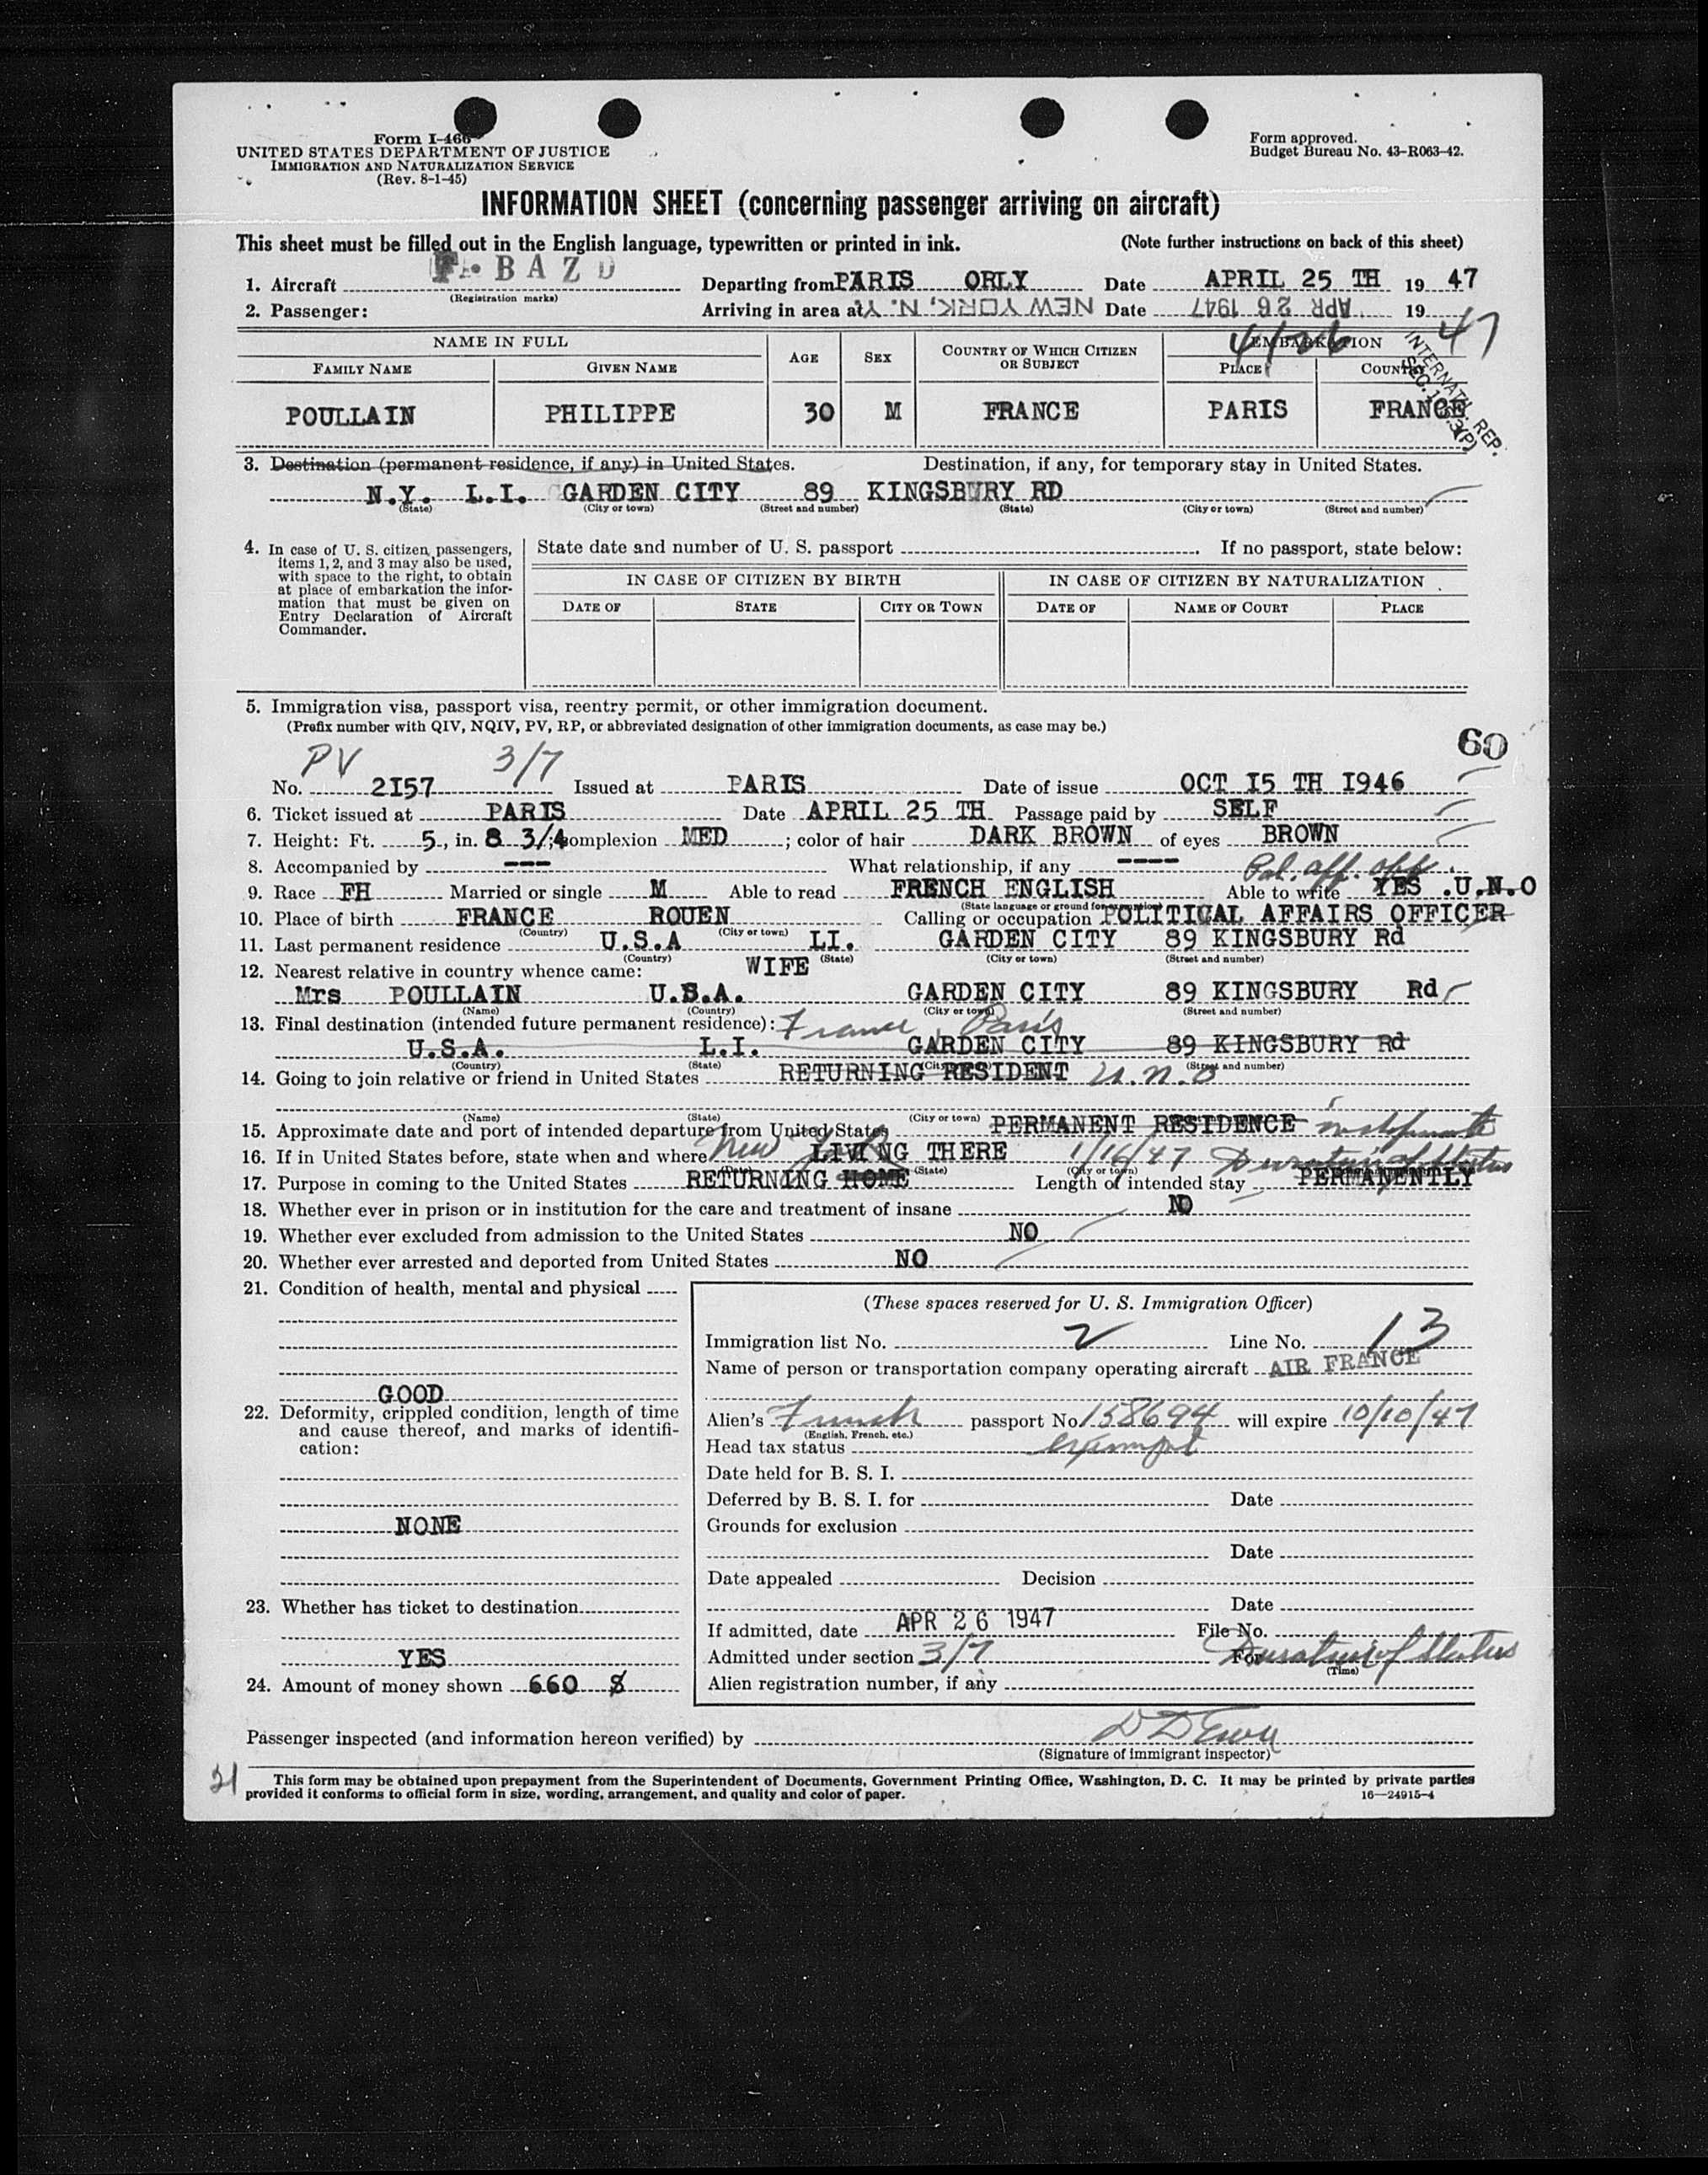 Form I-466
UNITED STATES DEPARTMENT OF JUSTICE
IMMIGRATION AND NATURALIZATION SERVICE
(Rev. 8-1-45)
Form approved.
Budget Bureau No. 43-R063-42.
INFORMATION SHEET (concerning passenger arriving on aircraft)
This sheet must be filled out in the English language, typewritten or printed in ink. (Note further instructions on back of this sheet)
1. Aircraft F-BAZD Departing from PARIS ORLY Date APRIL 25 TH 19 47
(Registration marks)
2. Passenger: Arriving in area at NEW YORK, N. Y. Date APR 26 1947 19 47
4/26
NAME IN FULL AGE SEX COUNTRY OF WHICH CITIZEN OR SUBJECT EMBARKATION
FAMILY NAME GIVEN NAME PLACE COUNTRY
INTERNATL. REP.
POULLAIN PHILIPPE 30 M FRANCE PARIS FRANCE
3. Destination (permanent residence, if any) in United States. Destination, if any, for temporary stay in United States.
N.Y. L.I. GARDEN CITY 89 KINGSBURY RD
(State) (City or town) (Street and number) (State) (City or town) (Street and number)
4. In case of U. S. citizen passengers, items 1, 2, and 3 may also be used, with space to the right, to obtain at place of embarkation the information that must be given on Entry Declaration of Aircraft Commander.
State date and number of U. S. passport . If no passport, state below:
IN CASE OF CITIZEN BY BIRTH IN CASE OF CITIZEN BY NATURALIZATION
DATE OF STATE CITY OR TOWN DATE OF NAME OF COURT PLACE
5. Immigration visa, passport visa, reentry permit, or other immigration document.
(Prefix number with QIV, NQIV, PV, RP, or abbreviated designation of other immigration documents, as case may be.)
60
PV 3/7
No. 2I57 Issued at PARIS Date of issue OCT I5 TH I946
6. Ticket issued at PARIS Date APRIL 25 TH Passage paid by SELF
7. Height: Ft. 5, in. 8 3/4; complexion MED; color of hair DARK BROWN of eyes BROWN
8. Accompanied by --- What relationship, if any ---- Pol. aff. off.
9. Race FH Married or single M Able to read FRENCH ENGLISH Able to write YES .U.N.O
(State language or ground for exemption)
10. Place of birth FRANCE ROUEN Calling or occupation POLITICAL AFFAIRS OFFICER
(Country) (City or town)
11. Last permanent residence U.S.A LI. GARDEN CITY 89 KINGSBURY Rd
(Country) (State) (City or town) (Street and number)
12. Nearest relative in country whence came: WIFE
Mrs POULLAIN U.S.A. GARDEN CITY 89 KINGSBURY Rd
(Name) (Country) (City or town) (Street and number)
13. Final destination (intended future permanent residence): France, Paris
U.S.A. L.I. GARDEN CITY 89 KINGSBURY Rd
(Country) (State) (City or town) (Street and number)
14. Going to join relative or friend in United States RETURNING RESIDENT U.N.O
(Name) (State) (City or town)
15. Approximate date and port of intended departure from United States PERMANENT RESIDENCE
16. If in United States before, state when and where New York LIVING THERE 1/16/47 Duration of Status
(Date) (State) (City or town)
17. Purpose in coming to the United States RETURNING HOME Length of intended stay PERMANENTLY
18. Whether ever in prison or in institution for the care and treatment of insane NO
19. Whether ever excluded from admission to the United States NO
20. Whether ever arrested and deported from United States NO
21. Condition of health, mental and physical
GOOD
22. Deformity, crippled condition, length of time and cause thereof, and marks of identification:
NONE
23. Whether has ticket to destination
YES
24. Amount of money shown 660 $
(These spaces reserved for U. S. Immigration Officer)
Immigration list No. 2 Line No. 13
Name of person or transportation company operating aircraft AIR FRANCE
Alien's French passport No 158694 will expire 10/10/47
(English, French, etc.)
Head tax status exempt
Date held for B. S. I.
Deferred by B. S. I. for Date
Grounds for exclusion
Date
Date appealed Decision
Date
If admitted, date APR 26 1947 File No.
Admitted under section 3/7 For Duration of Status
(Time)
Alien registration number, if any
Passenger inspected (and information hereon verified) by
(Signature of immigrant inspector)
21
This form may be obtained upon prepayment from the Superintendent of Documents, Government Printing Office, Washington, D. C. It may be printed by private parties
provided it conforms to official form in size, wording, arrangement, and quality and color of paper.
16—24915-4